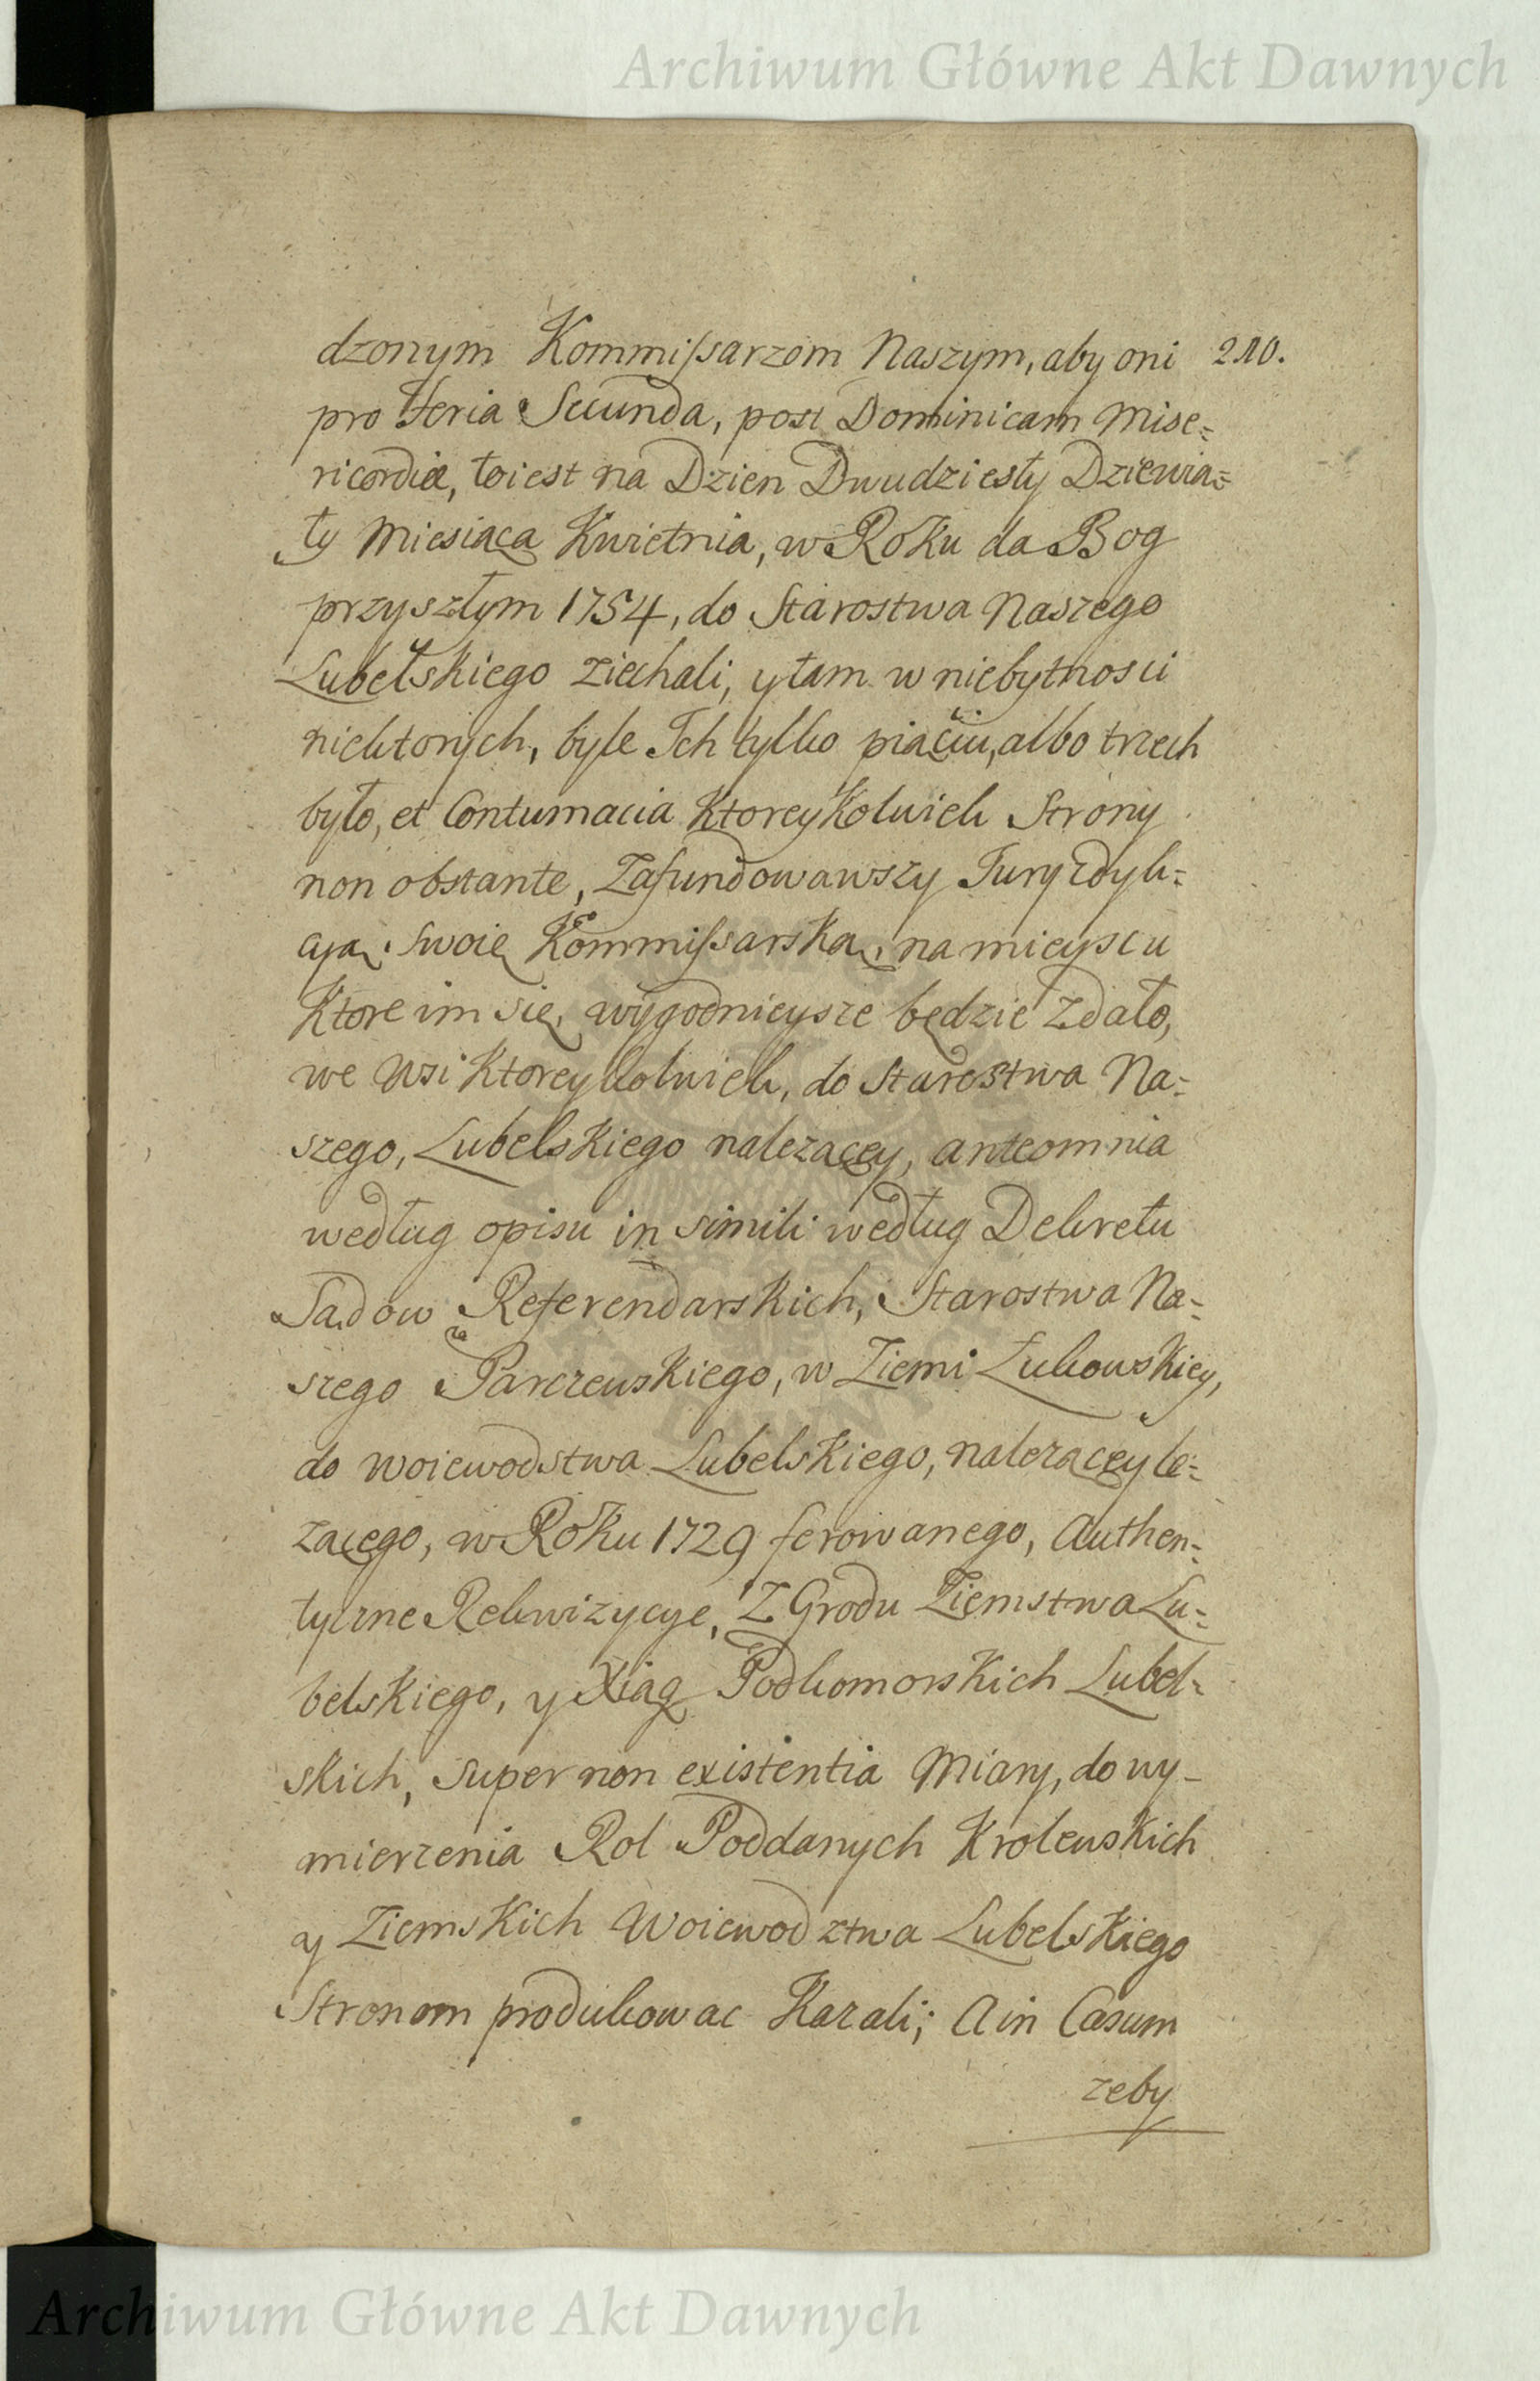 Archiwum Główne Akt Dawnych
dzonym Kommissarzom Naszym, aby oni 210.
pro Feria Secunda, post Dominicam Mise=
ricordiæ, toiest na Dzien Dwudziesty Dziewia=
ty Miesiąca Kwietnia, w Roku da Bog
przyszłym 1754, do Starostwa Naszego
Lubelskiego ziechali, y tam w niebytnosci
niektorych, byle Ich tylko piąciu, albo trzech
było, et Contumacia Ktoreykolwiek Strony
non obstante, Zafundowawszy Juryzdyk=
cyą swoię Kommissarską, na mieyscu
Ktore im się, wygodnieysze będzie zdało,
we wsi Ktoreykolwiek, do Starostwa Na=
szego, Lubelskiego nalezącey, anteomnia
według opisu in simili według Dekretu
Sądow Referendarskich, Starostwa Na=
szego Parczewskiego, w Ziemi Łukowskiey,
do Woiewodstwa Lubelskiego, nalezącey le=
zącego, w Roku 1729 ferowanego, Authen=
tyczne Rekwizycye, Z Grodu Ziemstwa Lu=
belskiego, y Xiąg Podkomorskich Lubel=
skich, super non existentia Miary, do wy-
mierzenia Rol Poddanych Krolewskich
y Ziemskich Woiewodztwa Lubelskiego
Stronom produkowac Kazali; A in Casum
zeby
Archiwum Główne Akt Dawnych